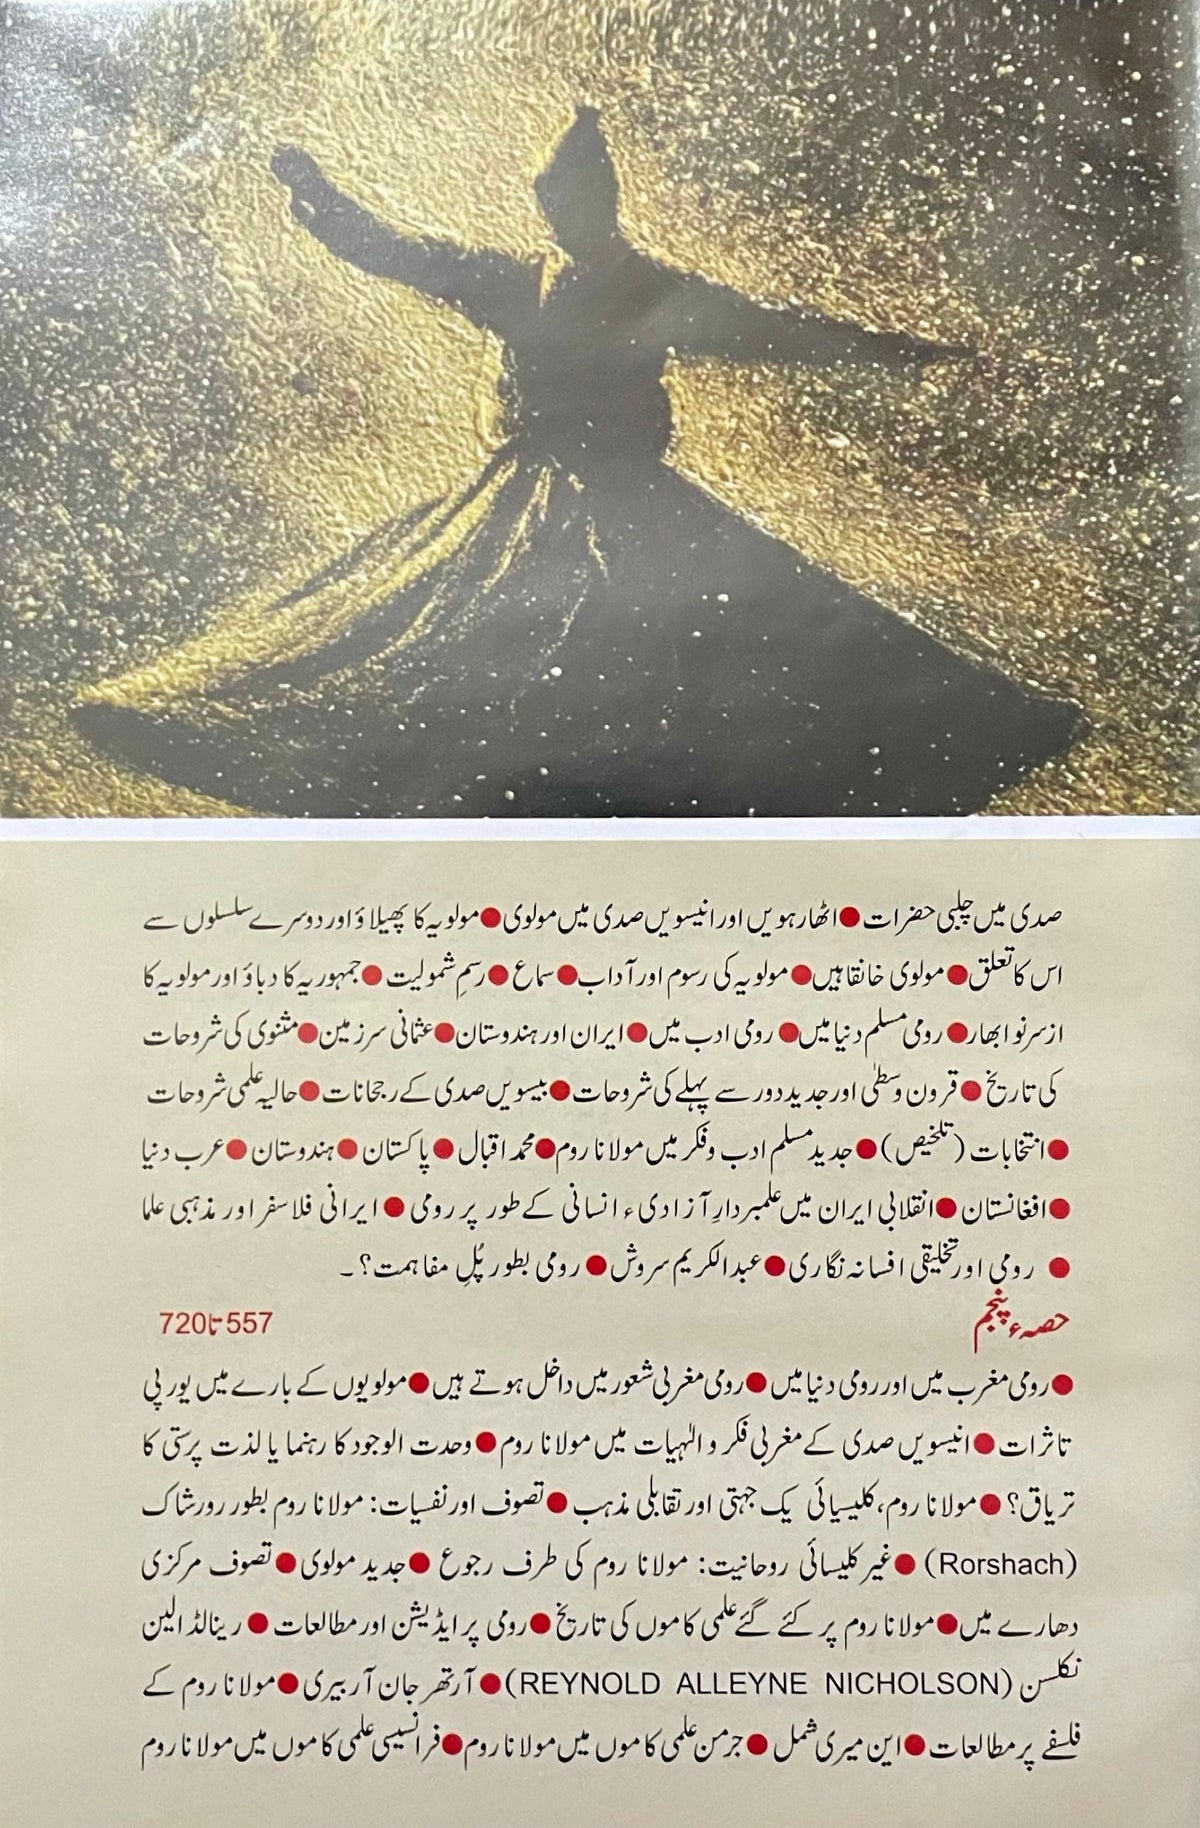 صدی میں چلپی حضرات ● اٹھارہویں اور انیسویں صدی میں مولوی ● مولویہ کا پھیلاؤ اور دوسرے سلسلوں سے
اس کا تعلق ● مولوی خانقاہیں ● مولویہ کی رسوم اور آداب ● سماع ● رسمِ شمولیت ● جمہوریہ کا دباؤ اور مولویہ کا
ازسرنو ابھار ● رومی مسلم دنیا میں ● رومی ادب میں ● ایران اور ہندوستان ● عثمانی سرزمین ● مثنوی کی شروحات
کی تاریخ ● قرون وسطیٰ اور جدید دور سے پہلے کی شروحات ● بیسویں صدی کے رجحانات ● حالیہ علمی شروحات
● انتخابات (تلخیص) ● جدید مسلم ادب وفکر میں مولانا روم ● محمد اقبال ● پاکستان ● ہندوستان ● عرب دنیا
● افغانستان ● انقلابی ایران میں علمبردارِ آزادیء انسانی کے طور پر رومی ● ایرانی فلاسفر اور مذہبی علما
● رومی اور تخلیقی افسانہ نگاری ● عبدالکریم سروش ● رومی بطور پُلِ مفاہمت؟ ۔
حصہء پنجم 557 تا 720
● رومی مغرب میں اور رومی دنیا میں ● رومی مغربی شعور میں داخل ہوتے ہیں ● مولویوں کے بارے میں یورپی
تاثرات ● انیسویں صدی کے مغربی فکر و الٰہیات میں مولانا روم ● وحدت الوجود کا رہنما یا لذت پرستی کا
تریاق؟ ● مولانا روم، کلیسیائی یک جہتی اور تقابلی مذہب ● تصوف اور نفسیات: مولانا روم بطور رورشاک
(Rorshach) ● غیر کلیسائی روحانیت: مولانا روم کی طرف رجوع ● جدید مولوی ● تصوف مرکزی
دھارے میں ● مولانا روم پر کئے گئے علمی کاموں کی تاریخ ● رومی پر ایڈیشن اور مطالعات ● رینالڈ الین
نکلسن (REYNOLD ALLEYNE NICHOLSON) ● آرتھر جان آربیری ● مولانا روم کے
فلسفے پر مطالعات ● این میری شمل ● جرمن علمی کاموں میں مولانا روم ● فرانسیسی علمی کاموں میں مولانا روم